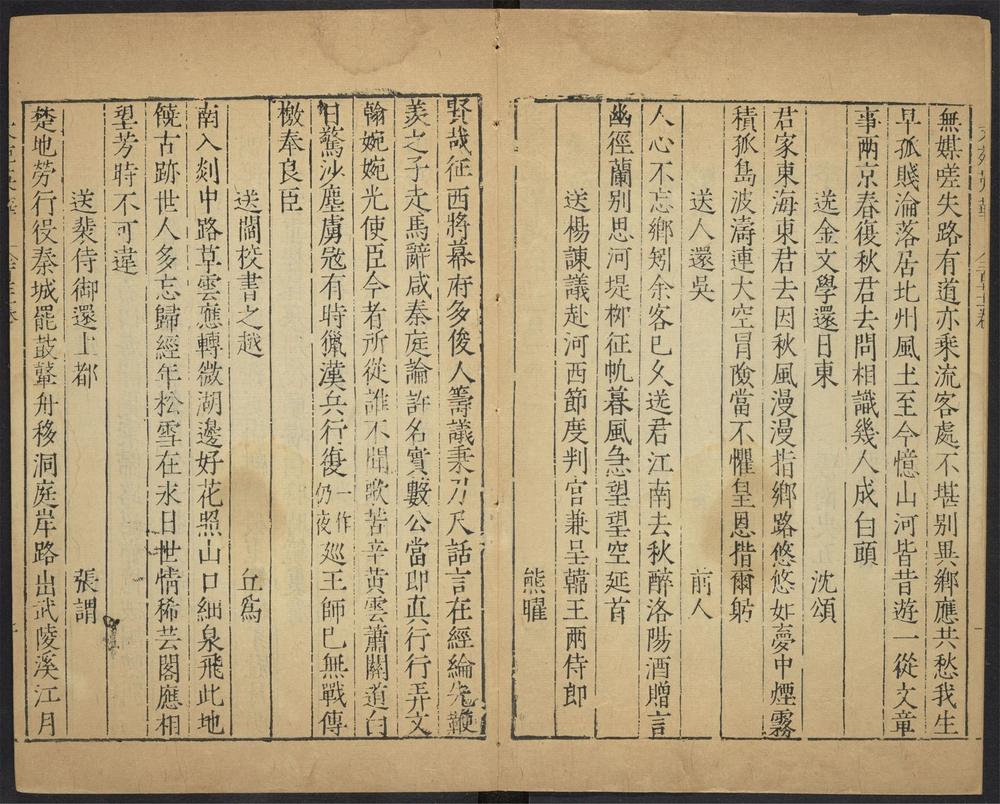 無媒嗟失路有道亦乗流客處不堪别異鄉應共愁我生
早孤賤淪落居此州風土至今憶山河皆昔遊一從文章
事兩京春復秋君去問相識幾人成白頭
送金文學還日東 沈頌
君家東海東君去因秋風漫漫指鄉路悠悠如夢中煙霧
積孤島波濤連大空冒險當不懼皇恩措爾躬
送人還吳 前人
人心不忘鄉矧余客已久送君江南去秋醉洛陽酒贈言
幽徑蘭别思河堤柳征帆暮風急望望空延首
送楊諌議赴河西節度判官兼呈韓王兩侍郎
熊曜
賢哉征西將幕府多俊人籌議秉刀尺話言在經綸先鞭
羡之子走馬辭咸秦庭論許名實數公當即真行行弄文
翰婉婉光使臣今者所從誰不聞歌苦辛黄雲蕭關道白
日驚沙塵虜寇有時獵漢兵行復一作仍夜廵王師已無戰傳
檄奉良臣
送閻校書之越 丘為
南入剡中路草雲應轉微湖邊好花照山口細泉飛此地
饒古跡世人多忘歸經年松雪在永日世情稀芸閣應相
望芳時不可違
送裴侍御還上都 張謂
楚地勞行役秦城罷鼓鼙舟移洞庭岸路出武陵溪江月